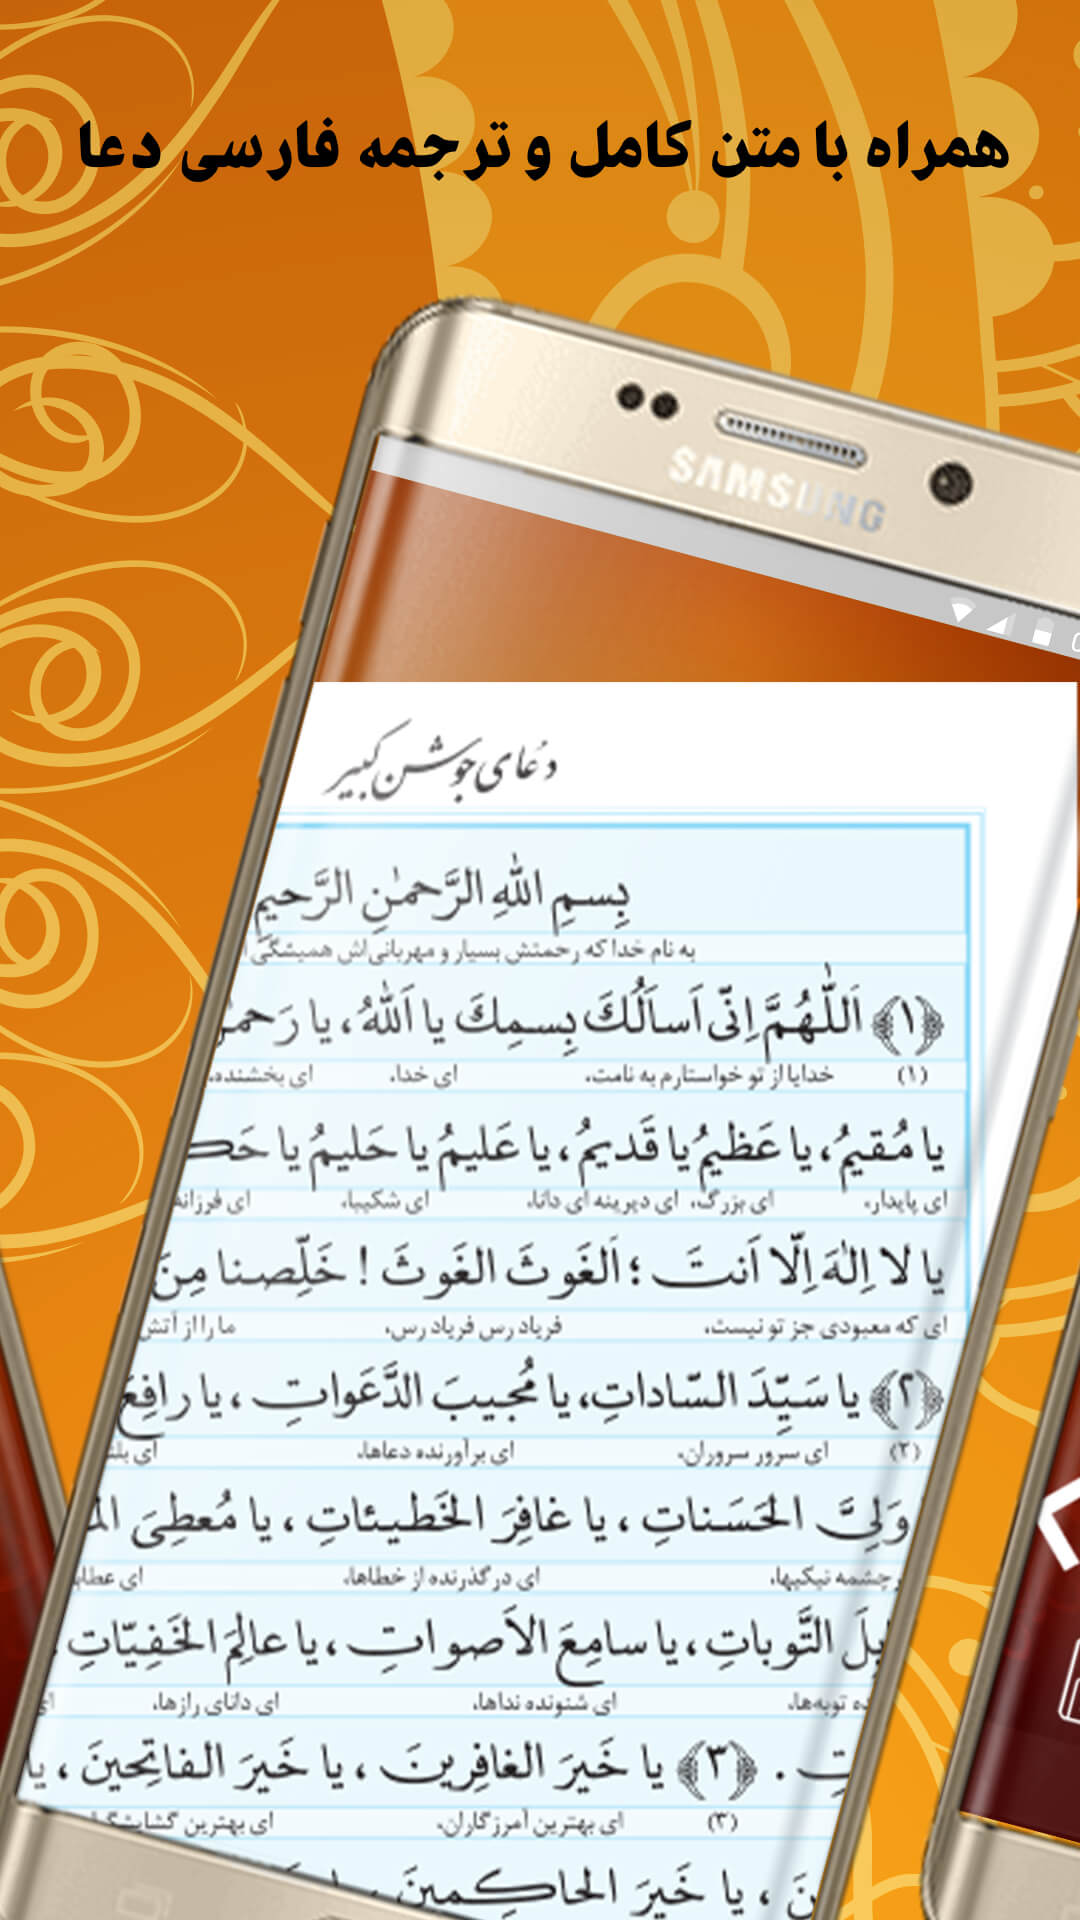 همراه با متن کامل و ترجمه فارسی دعا
SAMSUNG
دعای جوشن کبیر
بِسمِ اللهِ الرَّحمٰنِ الرَّحیمِ
به نام خدا که رحمتش بسیار و مهربانی‌اش همیشگی
﴿۱﴾ اَللّٰهُمَّ اِنّی اَساَلُكَ بِسمِكَ یا اَللهُ ، یا رَحمٰنُ
(۱) خدایا از تو خواستارم به نامت، ای خدا، ای بخشنده،
یا مُقیمُ ، یا عَظیمُ یا قَدیمُ ، یا عَلیمُ یا حَلیمُ یا
ای پایدار، ای بزرگ، ای دیرینه ای دانا، ای شکیبا، ای فرزانه
یا لا اِلٰهَ اِلّا اَنتَ ؛ اَلغَوثَ الغَوثَ ! خَلِّصنا مِنَ
ای که معبودی جز تو نیست، فریاد رس فریاد رس، ما را از آتش
﴿۲﴾ یا سَیِّدَ السّاداتِ، یا مُجیبَ الدَّعَواتِ ، یا رافِعَ
(۲) ای سرور سروران، ای برآورنده دعاها، ای
وَلِیَّ الحَسَناتِ ، یا غافِرَ الخَطیئاتِ ، یا مُعطِیَ
نیکیها، ای درگذرنده از خطاها، ای
التَّوباتِ ، یا سامِعَ الاَصواتِ ، یا عالِمَ الخَفِیّاتِ
توبه‌ها، ای شنونده نداها، ای دانای رازها، ای
. ﴿۳﴾ یا خَیرَ الغافِرینَ ، یا خَیرَ الفاتِحینَ ، یا
(۳) ای بهترین آمرزگاران، ای بهترین
، یا خَیرَ الحاکِمینَ ،